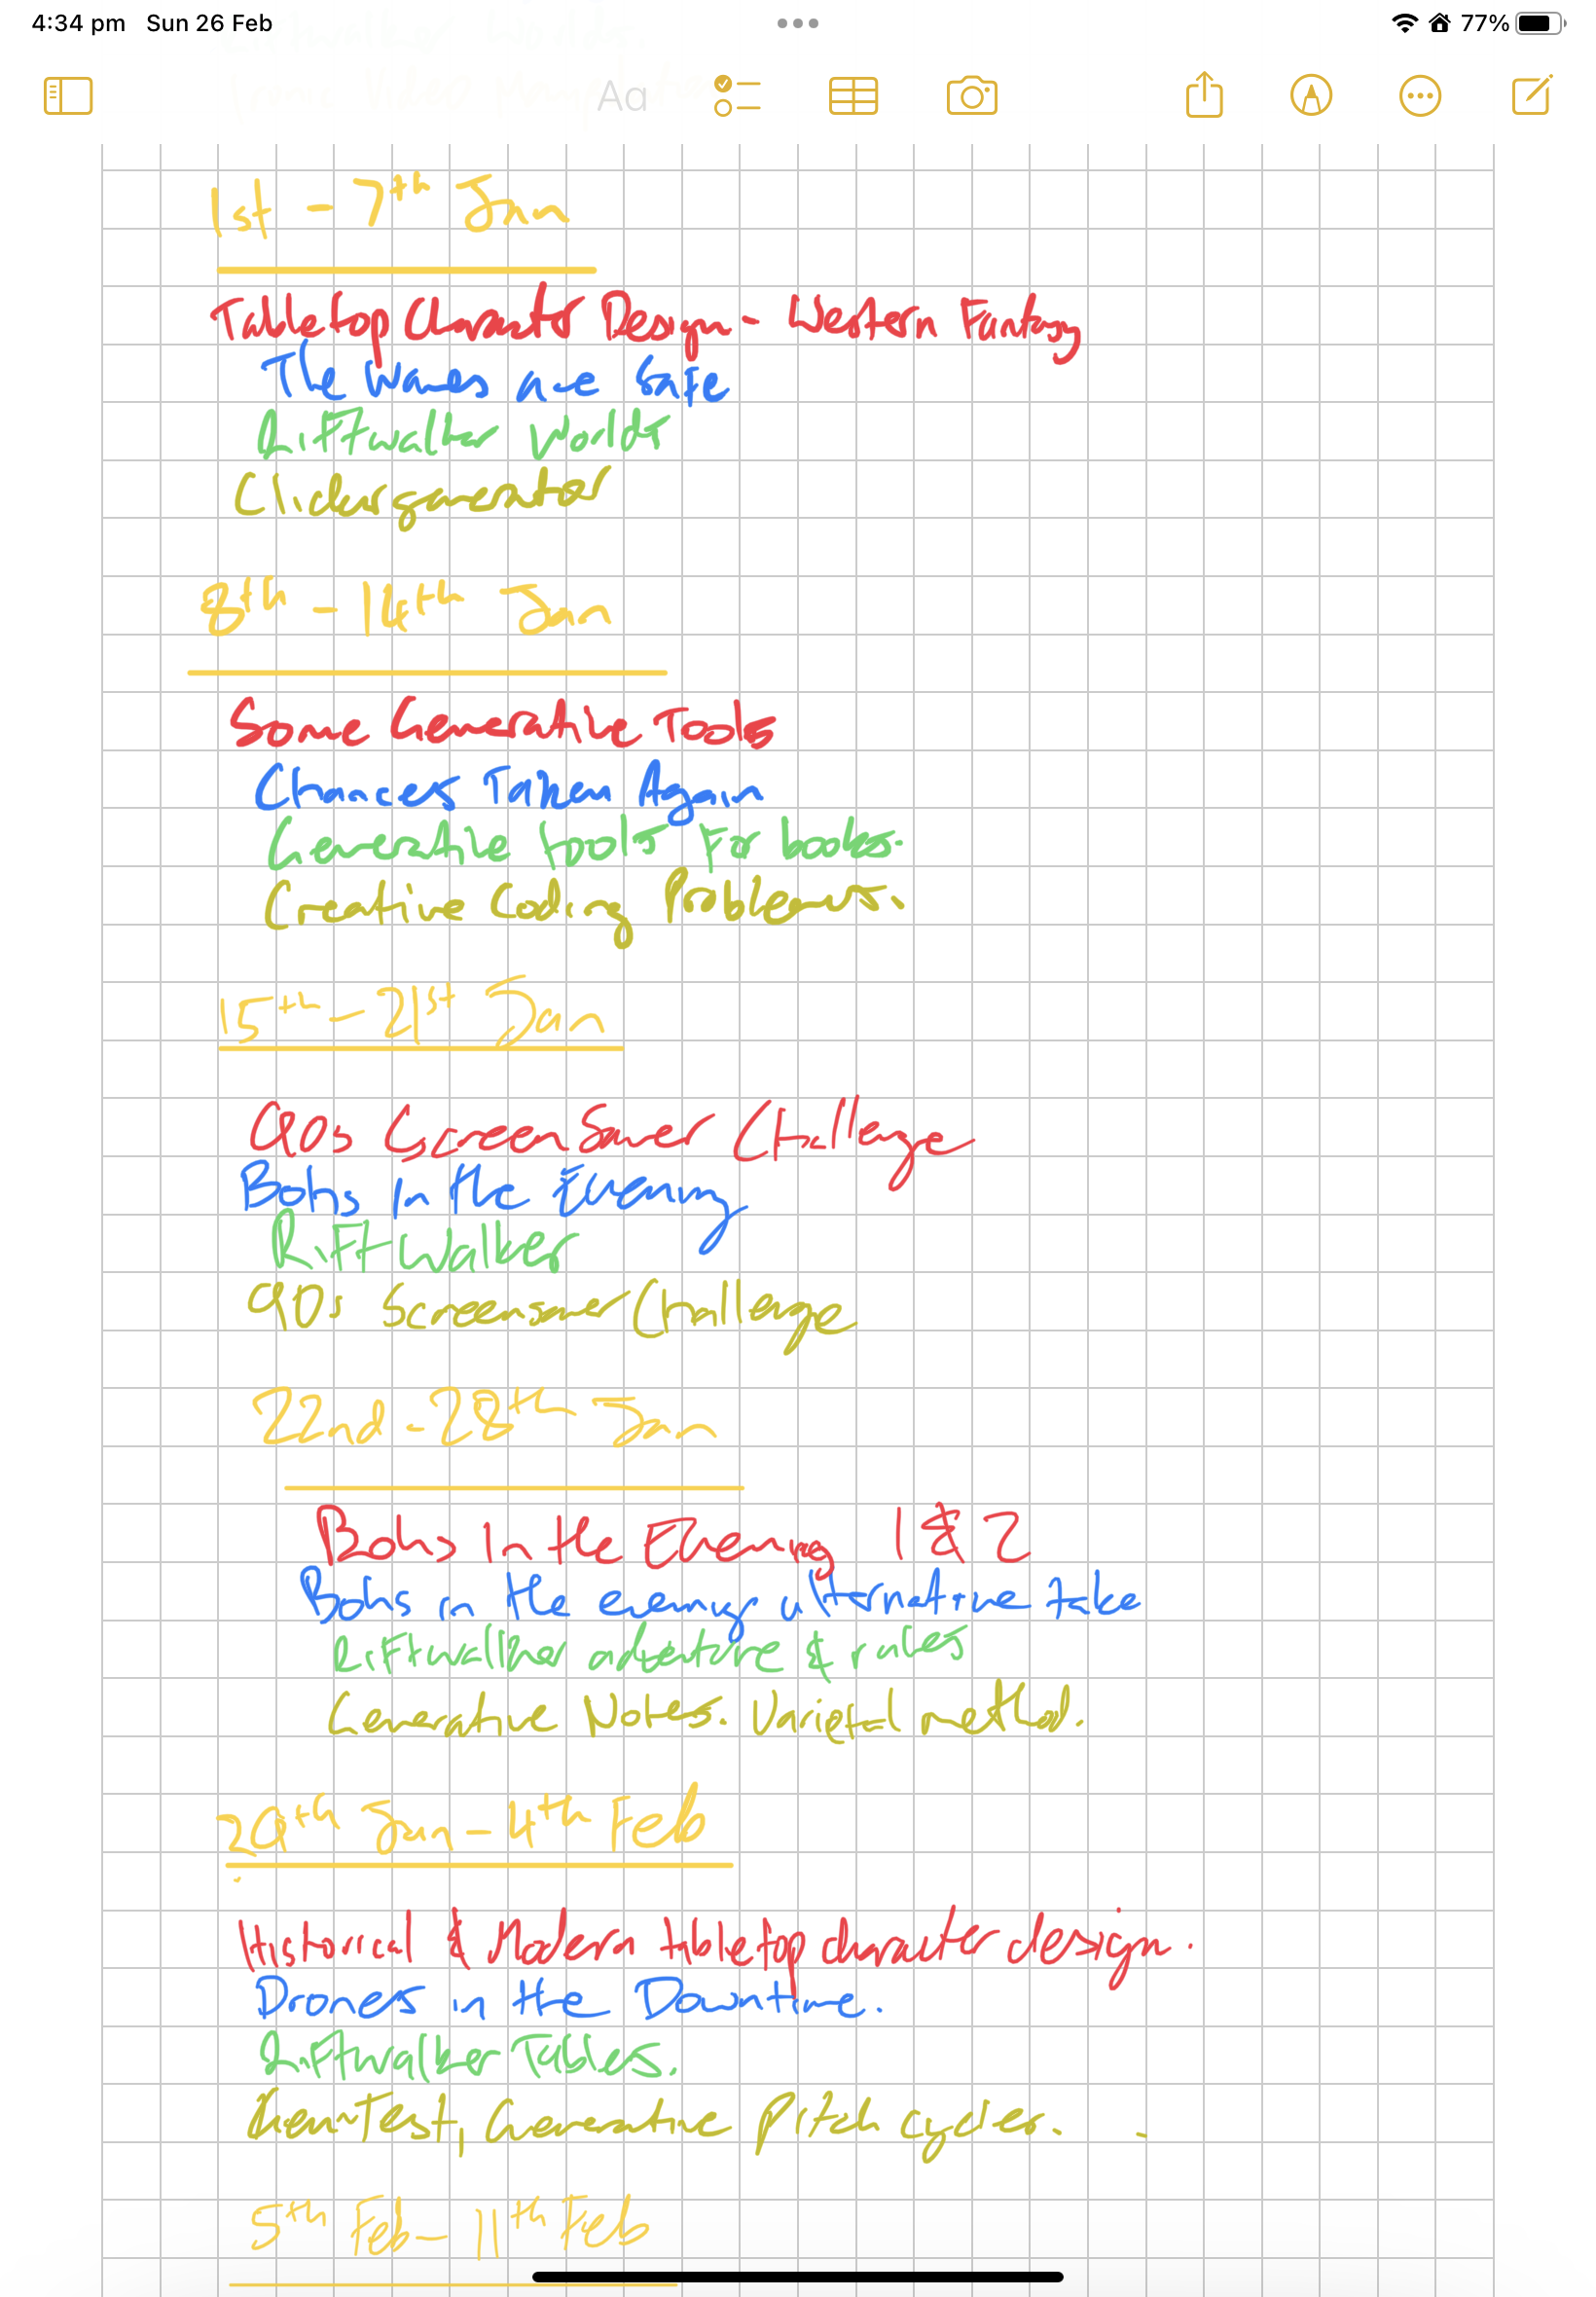 4:34 pm Sun 26 Feb
77%
Aa
1st - 7th Jan
Tabletop Character Design - Western Fantasy
The Waves are Safe
Riftwalker Worlds
Clickergenerator
8th - 14th Jan
Some Generative Tools
Chances Taken Again
Generative tools For books.
Creative Coding Problems.
15th - 21st Jan
90s Screen Saver Challenge
Bohs In the Evening
RiftWalker
90s Screensaver Challenge
22nd - 28th Jan
Bohs In the Evening 1 & 2
Bohs in the evening alternative take
Riftwalker adventure & rules
Generative Notes. Varietal method.
29th Jan - 4th Feb
Historical & Modern tabletop character design.
Drones in the Downtime.
Riftwalker Tables.
Generative Pitch cycles.
5th Feb - 11th Feb